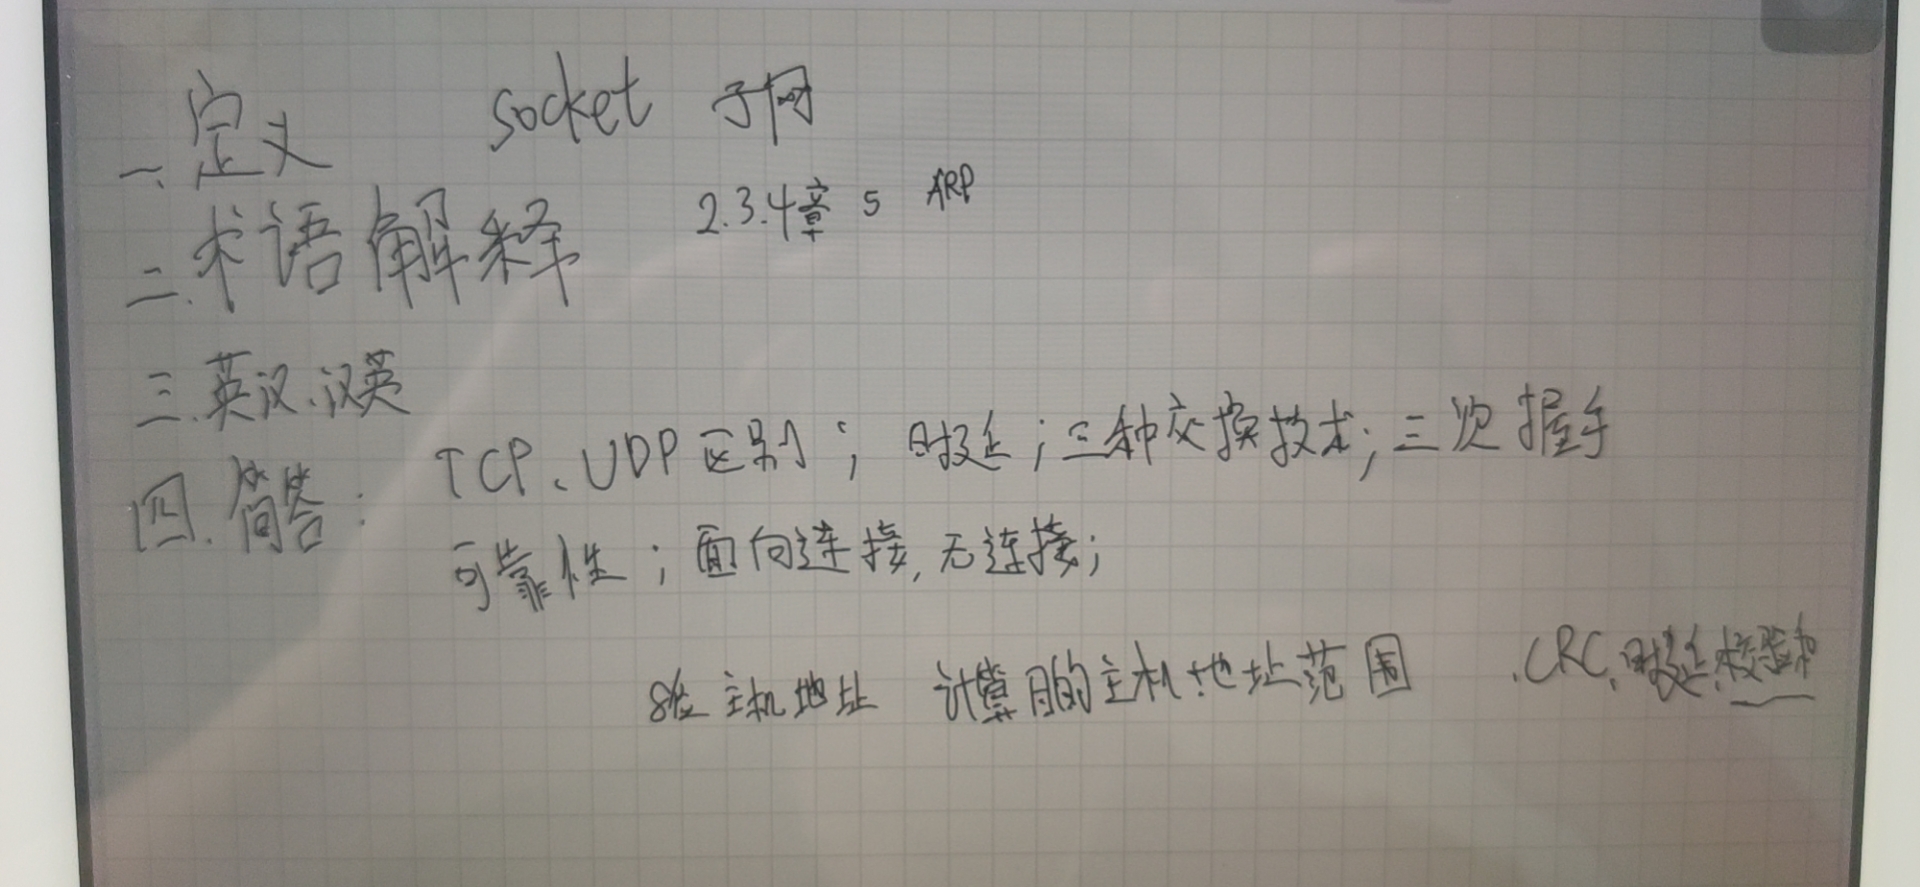 一、定义 socket 子网
二.术语解释 2.3.4章 5 ARP
三.英汉.汉英
四.简答: TCP、UDP区别; 时延;三种交换技术;三次握手
可靠性;面向连接,无连接;
主机地址 计算 的主机地址范围 .CRC.时延.校验和